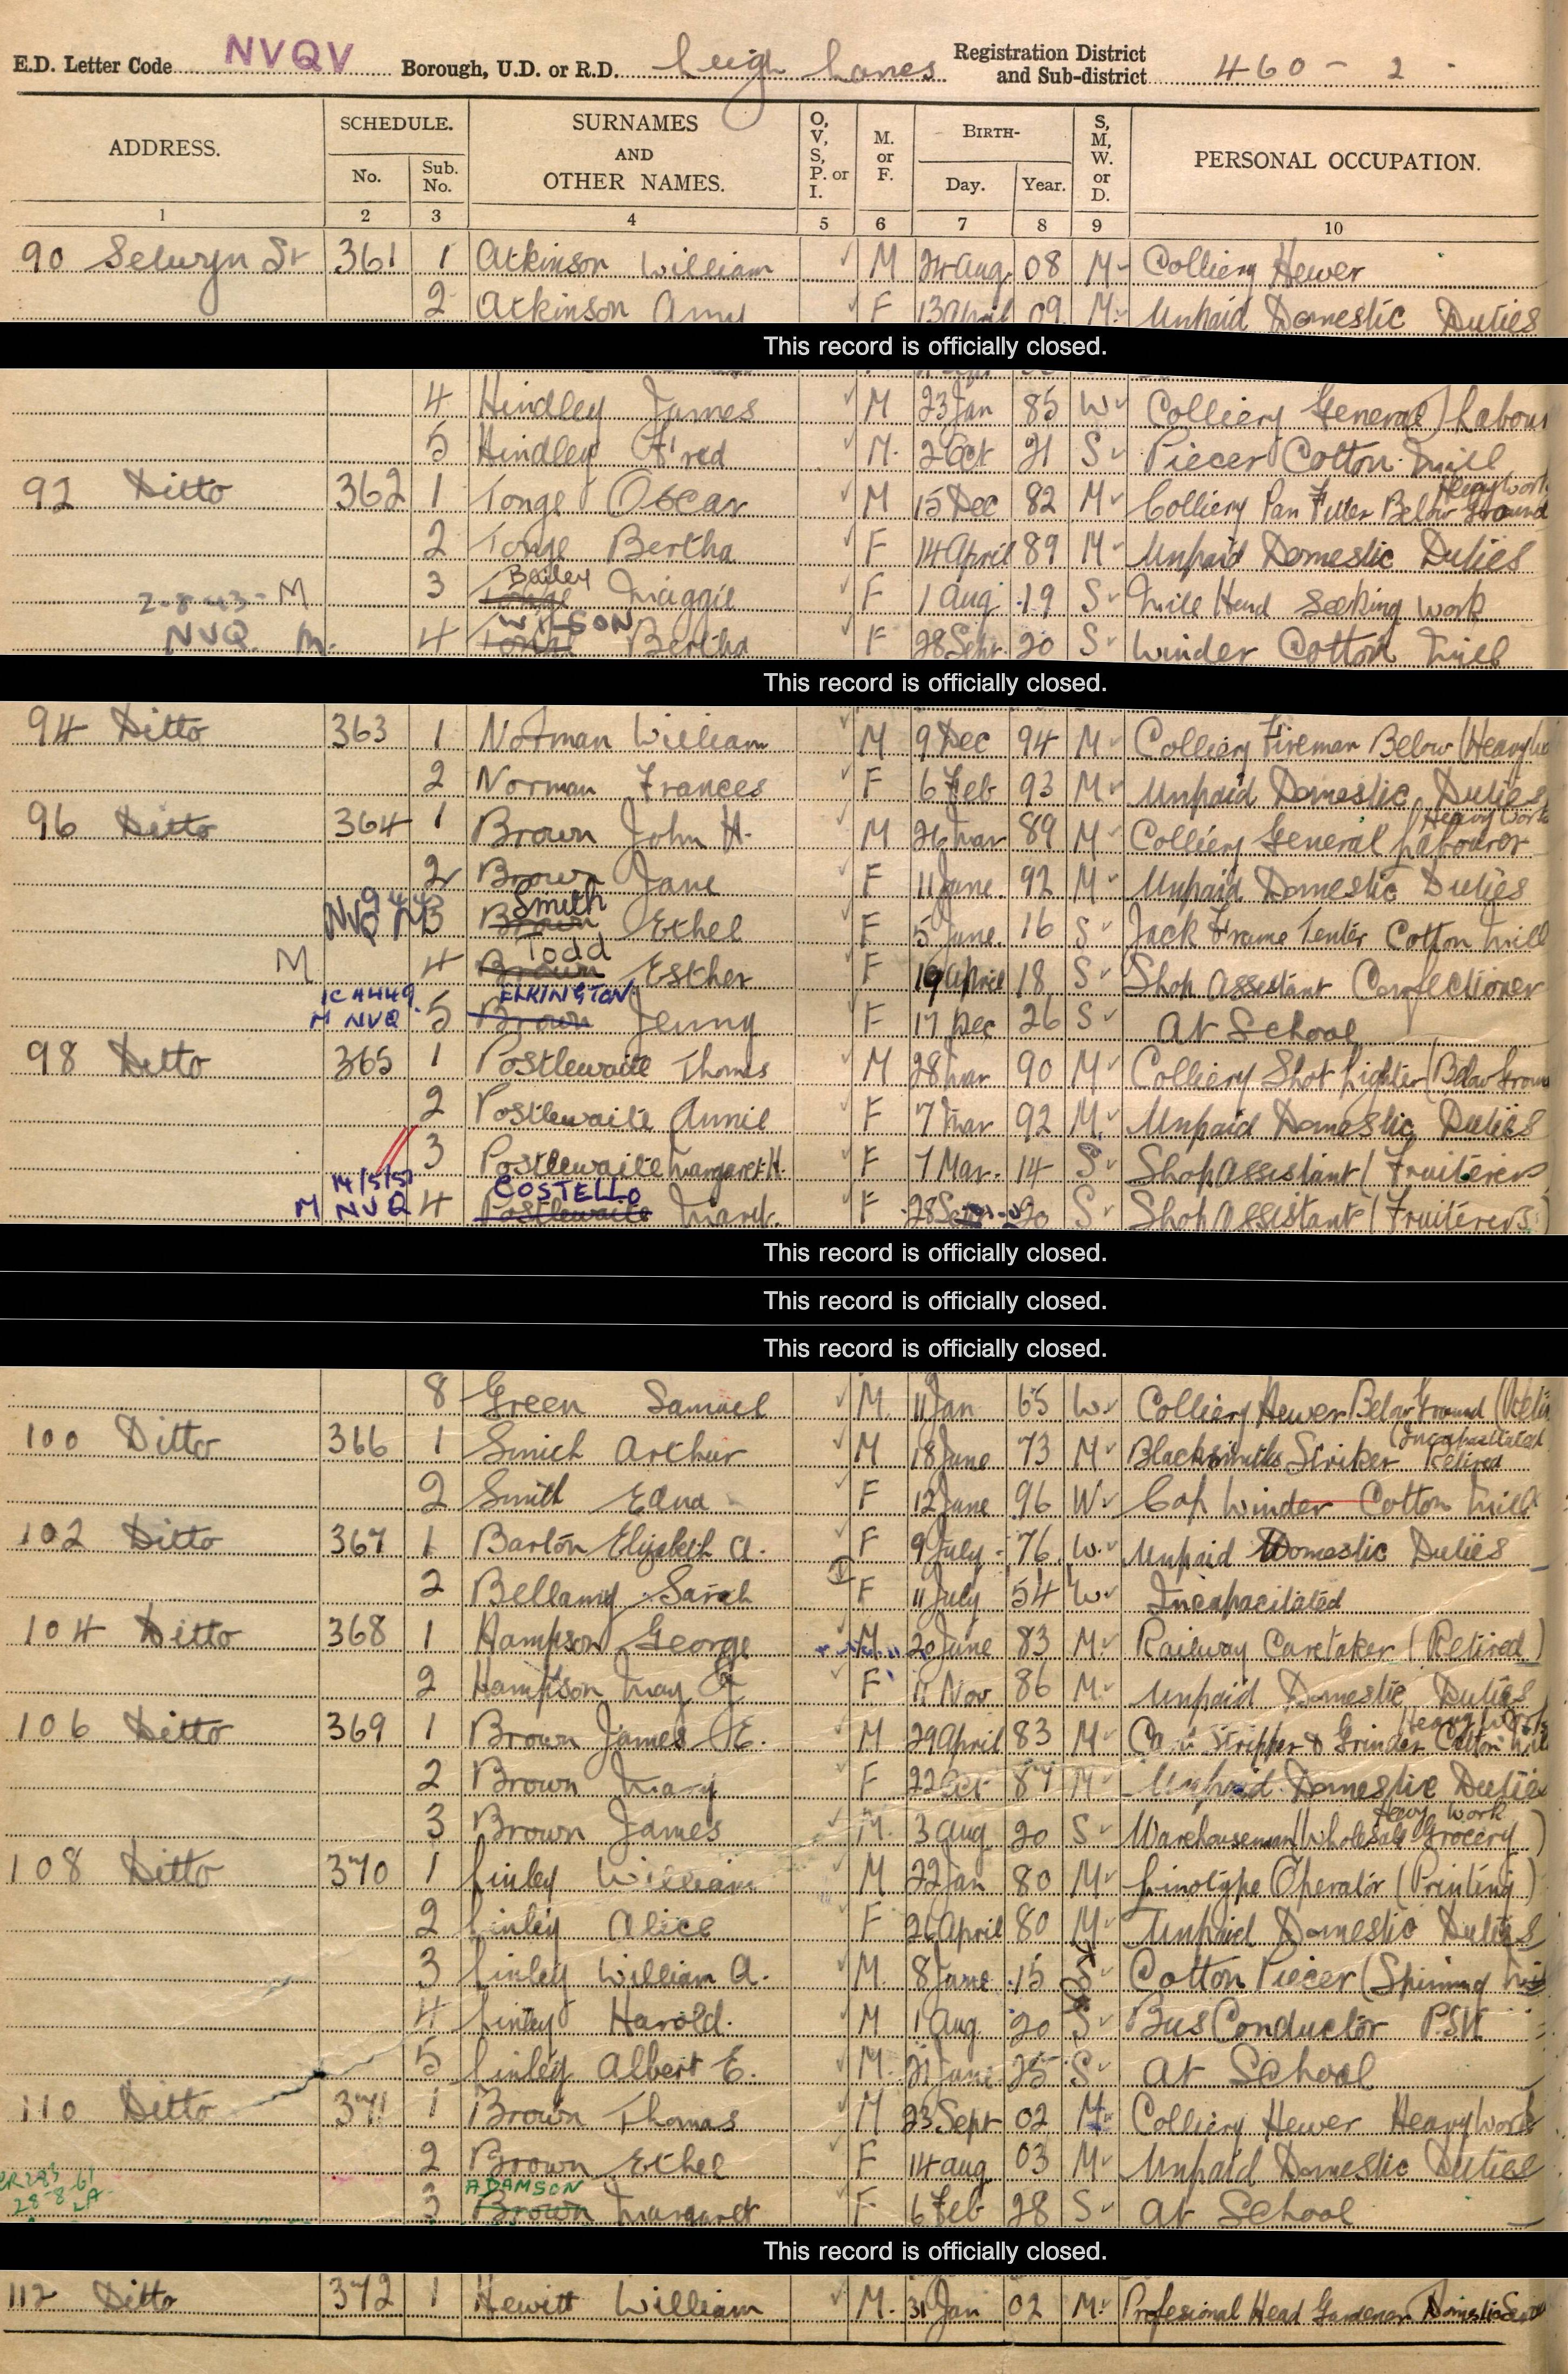 E.D. Letter Code NVQV Borough, U.D. or R.D. Leigh Lancs Registration District and Sub-district 460 - 2
ADDRESS. SCHEDULE. No. Sub. No. SURNAMES AND OTHER NAMES. O, V, S, P. or I. M. or F. BIRTH- Day. Year. S, M, W. or D. PERSONAL OCCUPATION.
1 2 3 4 5 6 7 8 9 10
90 Selwyn St 361 1 Atkinson William M 24 Aug 08 M Colliery Hewer
2 Atkinson Amy F 13 April 09 M Unpaid Domestic Duties
This record is officially closed.
4 Hindley James M 23 Jan 85 W Colliery General Labour
5 Hindley Fred M 2 Oct 21 S Piecer Cotton Mill
92 Ditto 362 1 Tonge Oscar M 15 Dec 82 M Colliery Pan Fitter Below Ground Heavy Work
2 Tonge Bertha F 14 April 89 M Unpaid Domestic Duties
2-8-43- M 3 Tonge Bailey Maggie F 1 Aug 19 S Mill Hand Seeking Work
NVQ M. 4 Tonge WILSON Bertha F 28 Sept 20 S Winder Cotton Mill
This record is officially closed.
94 Ditto 363 1 Norman William M 9 Dec 94 M Colliery Fireman Below (Heavy
2 Norman Frances F 6 Feb 93 M Unpaid Domestic Duties
96 Ditto 364 1 Brown John H. M 26 Mar 89 M Colliery General Labourer Heavy Work
2 Brown Jane F 11 June 92 M Unpaid Domestic Duties
NVQ M 3 Brown Smith Ethel F 5 June 16 S Jack Frame Tenter Cotton Mill
M 4 Brown Todd Esther F 19 April 18 S Shop Assistant Confectioner
M NVQ 5 Brown ELKINGTON Jenny F 17 Dec 26 S At School
98 Ditto 365 1 Postlewaite Thomas M 28 Mar 90 M Colliery Shot Lighter (Below Groun
2 Postlewaite Annie F 7 Mar 92 M Unpaid Domestic Duties
3 Postlewaite Margaret H. F 7 Mar. 14 S Shop Assistant (Fruiterers
14/5/51 M NVQ 4 Postlewaite COSTELLO F 28 20 S Shop Assistant (Fruiterers)
This record is officially closed.
This record is officially closed.
This record is officially closed.
8 Green Samuel M. 11 Jan 65 W Colliery Hewer Below Ground
100 Ditto 366 1 Smith Arthur M 18 June 73 M Blacksmiths Striker Retired (Incapacitated
2 Smith Edna F 12 June 96 W Cop Winder Cotton Mill
102 Ditto 367 1 Barton Elizabeth A. F 9 July 76 W. Unpaid Domestic Duties
2 Bellamy Sarah I F 11 July 54 W Incapacitated
104 Ditto 368 1 Hampson George M 20 June 83 M Railway Caretaker (Retired)
2 Hampson May E F 11 Nov 86 M Unpaid Domestic Duties
106 Ditto 369 1 Brown James E. M 29 April 83 M Stripper & Grinder Cotton Heavy Work
2 Brown Mary F 22 Oct 87 M Unpaid Domestic Duties
3 Brown James M. 3 Aug 20 S Warehouseman (Wholesale Grocery) Heavy Work
108 Ditto 370 1 Linley William M 22 Jan 80 M Linotype Operator (Printing)
2 Linley Alice F 26 April 80 M Unpaid Domestic Duties
3 Linley William A. M. 8 June 15 Cotton Piecer (Spinning
4 Linley Harold. M 1 Aug. 20 S Bus Conductor PSV
5 Linley Albert E. M. 21 June 25 S At School
110 Ditto 371 1 Brown Thomas M 23 Sept 02 M Colliery Hewer Heavy Work
2 Brown Ethel F 14 Aug 03 M Unpaid Domestic Duties
28-8-61 3 Brown ADAMSON Margaret F 6 Feb 28 S At School
This record is officially closed.
112 Ditto 372 1 Hewitt William M. 31 Jan 02 M Profesional Head Gardener